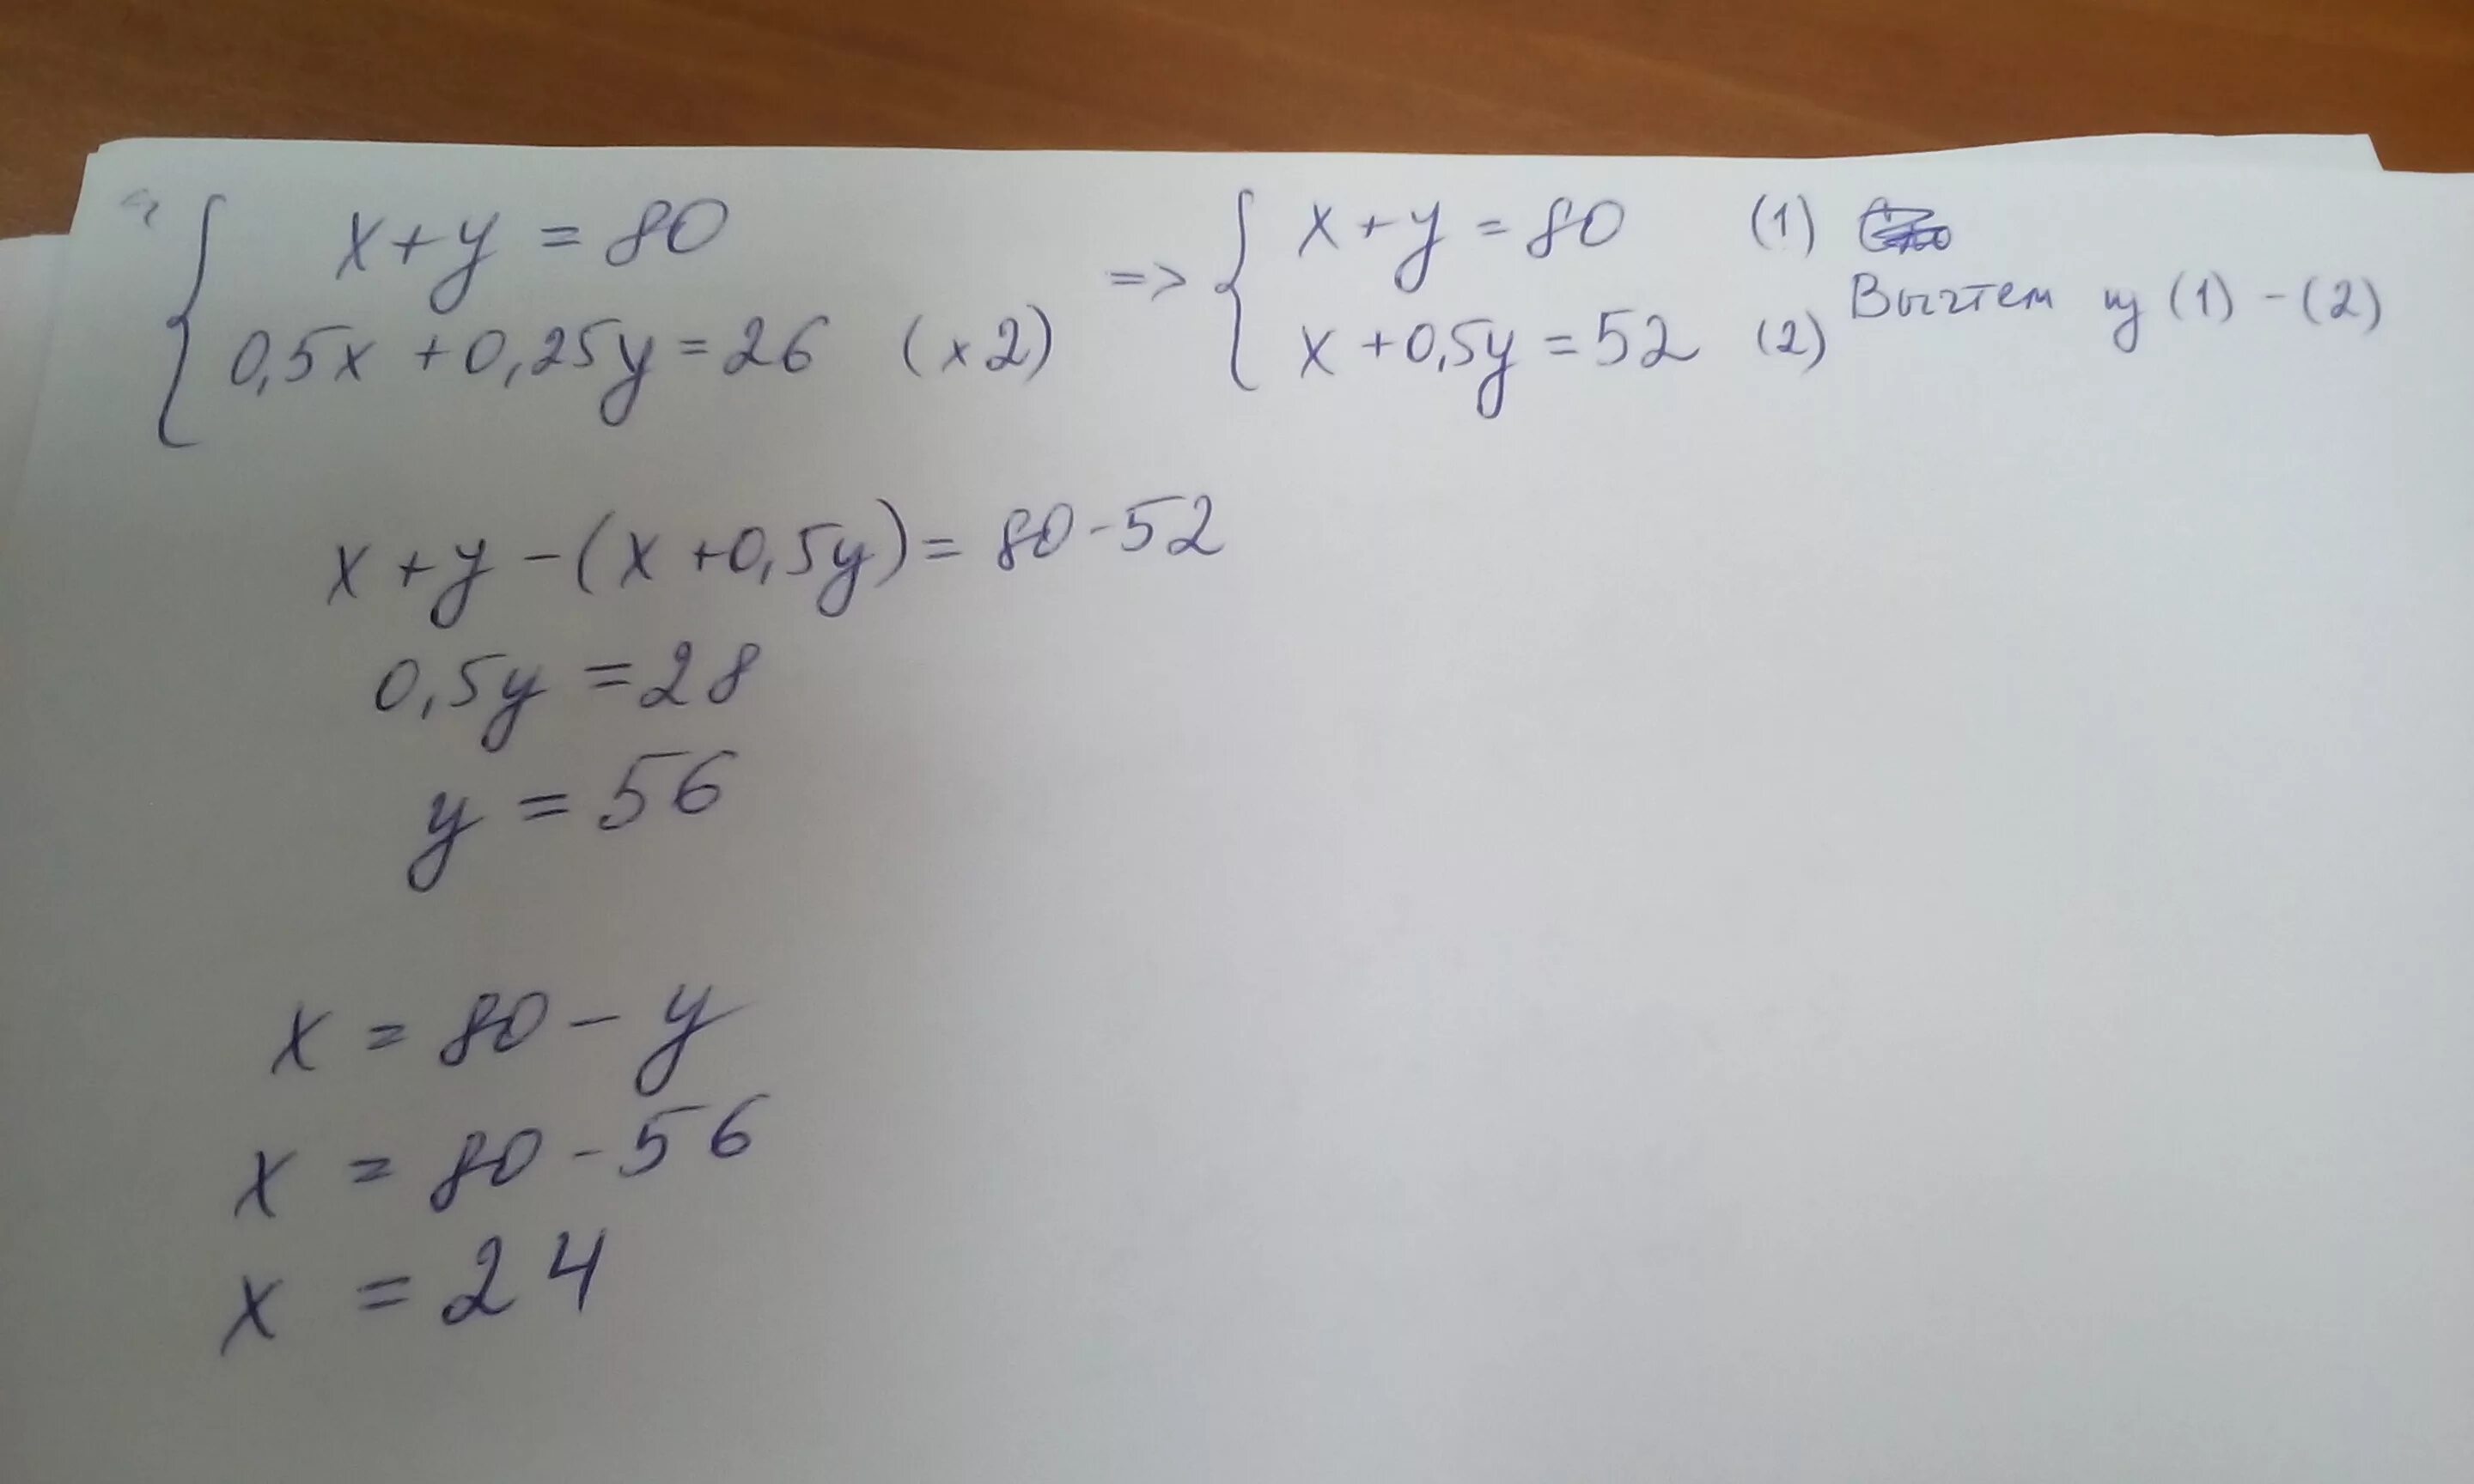 x+y = 80 => x+y = 80 (1)
0,5x + 0,25y = 26 (x2) x+0,5y = 52 (2) Вычтем из (1) - (2)
x + y - (x + 0,5y) = 80 - 52
0,5y = 28
y = 56
x = 80 - y
x = 80 - 56
x = 24